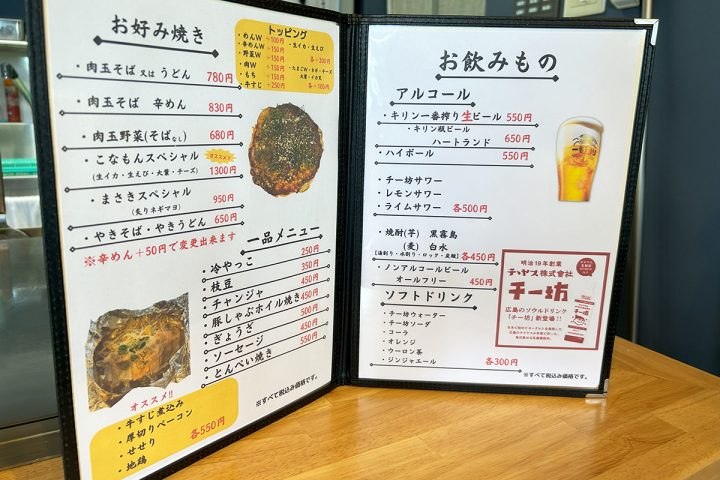 お好み焼き
・肉玉そば 又は うどん 780円
・肉玉そば 辛めん 830円
・肉玉野菜(そばなし) 680円
・こなもんスペシャル オススメ!!
(生イカ・生えび・大葉・チーズ) 1300円
・まさきスペシャル
(炙りネギマヨ) 950円
・やきそば・やきうどん 650円
※辛めん+50円で変更出来ます
トッピング
・めんW +100円
・辛めんW +150円
・野菜W +150円
・肉W +150円
・もち +150円
・牛すじ +250円
・生イカ・生えび
各+300円
・たまごW・ネギ・チーズ
大葉・イカ天
各+100円
一品メニュー
・冷やっこ 250円
・枝豆 350円
・チャンジャ 450円
・豚しゃぶホイル焼き 450円
・ぎょうざ 450円
・ソーセージ 500円
・とんぺい焼き 550円
オススメ!!
・牛すじ煮込み
・厚切りベーコン
・せせり
・地鶏
各550円
※すべて税込み価格です。
お飲みもの
アルコール
・キリン一番搾り生ビール 550円
・キリン瓶ビール
ハートランド 650円
・ハイボール 550円
・チー坊サワー
・レモンサワー
・ライムサワー 各500円
・焼酎(芋) 黒霧島
(麦) 白水
【湯割り・水割り・ロック・炭酸】 各450円
・ノンアルコールビール
オールフリー 450円
ソフトドリンク
・チー坊ウォーター
・チー坊ソーダ
・コーラ
・オレンジ
・ウーロン茶
・ジンジャエール 各300円
明治19年創業
チチヤス株式会社
チー坊
広島のソウルドリンク
「チー坊」新登場!!
※すべて税込み価格です。